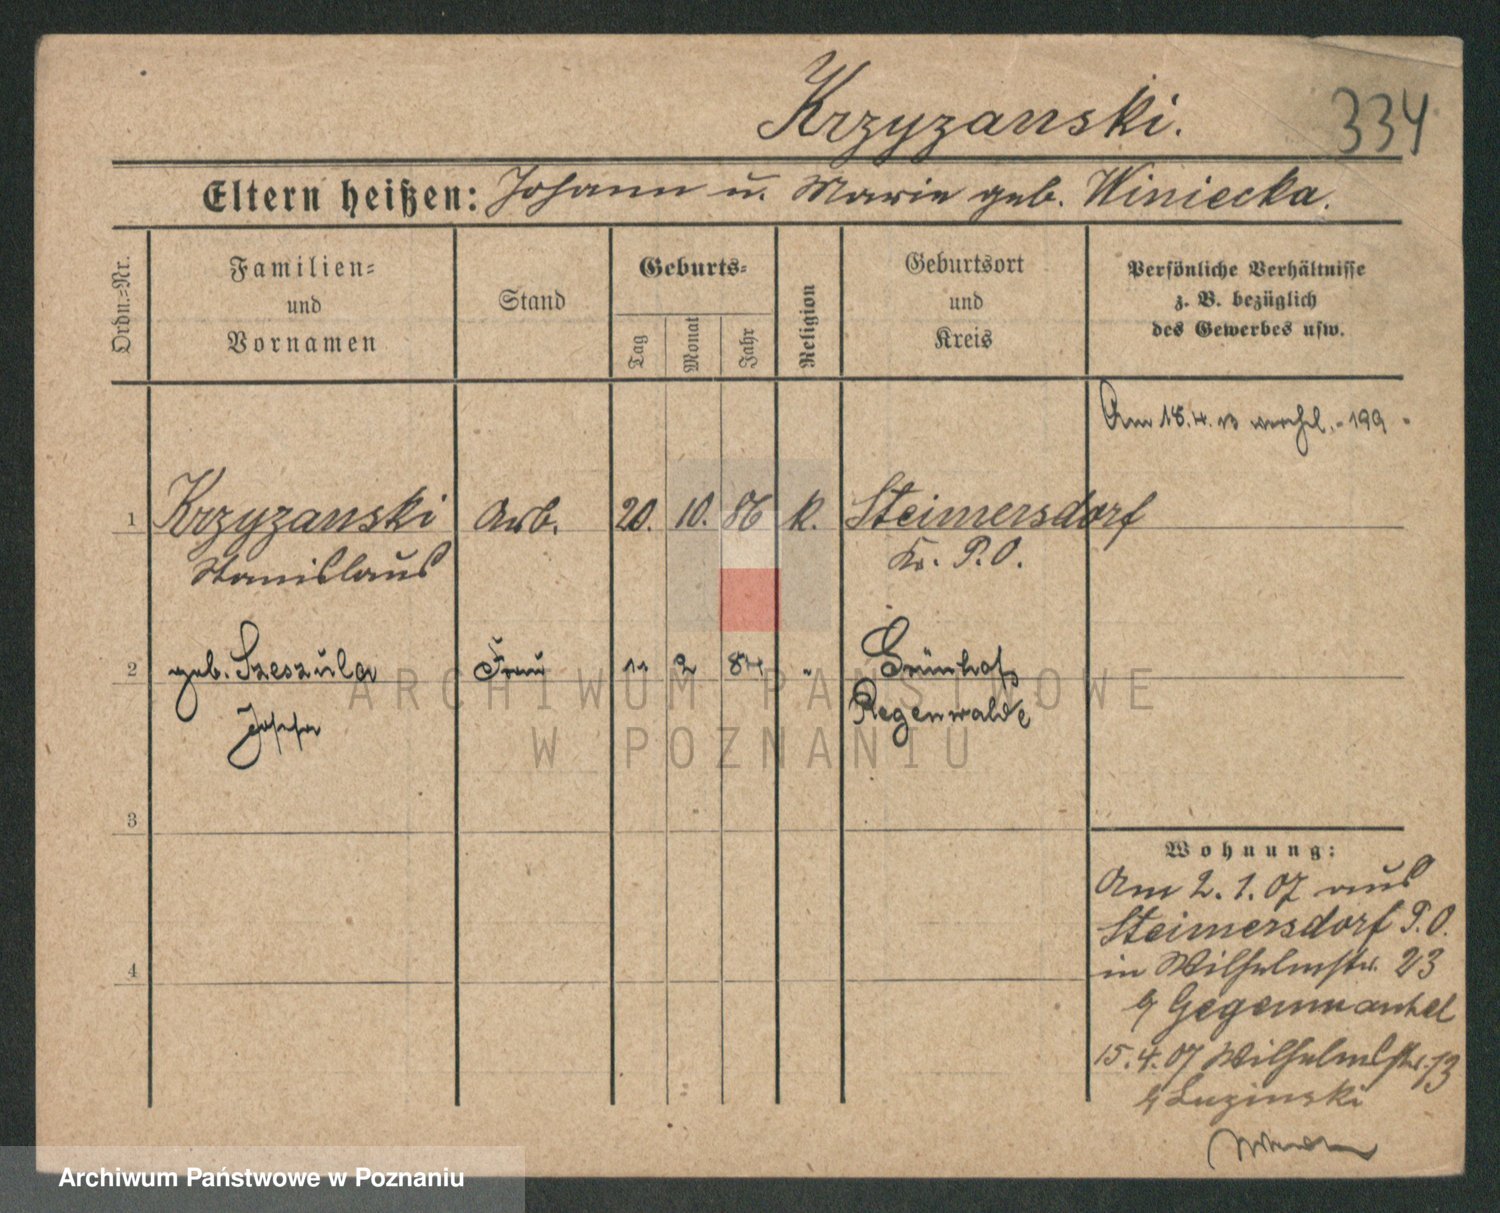 Krzyzanski.
334
Eltern heißen: Johann u. Marie geb. Winiecka.
Ordn.=Nr.
Familien=
und
Vornamen
Stand
Geburts=
Tag
Monat
Jahr
Religion
Geburtsort
und
Kreis
Persönliche Verhältnisse
z. B. bezüglich
des Gewerbes usw.
Am 18.4. 199
1 Krzyzanski Arb. 20. 10. 86 k. Steimersdorf
Stanislaus Kr. P.O.
2 geb. Szeszula Frau 11 2 84 " Grünhof
Josefa Regenwalde
3
4
Wohnung:
Am 2.1.07 aus
Steimersdorf P.O.
in Wilhelmstr. 23
b/ Gegenmantel
15.4.07 Wilhelmstr. 13
b/ Luzinski
ARCHIWUM PAŃSTWOWE
W POZNANIU
Archiwum Państwowe w Poznaniu